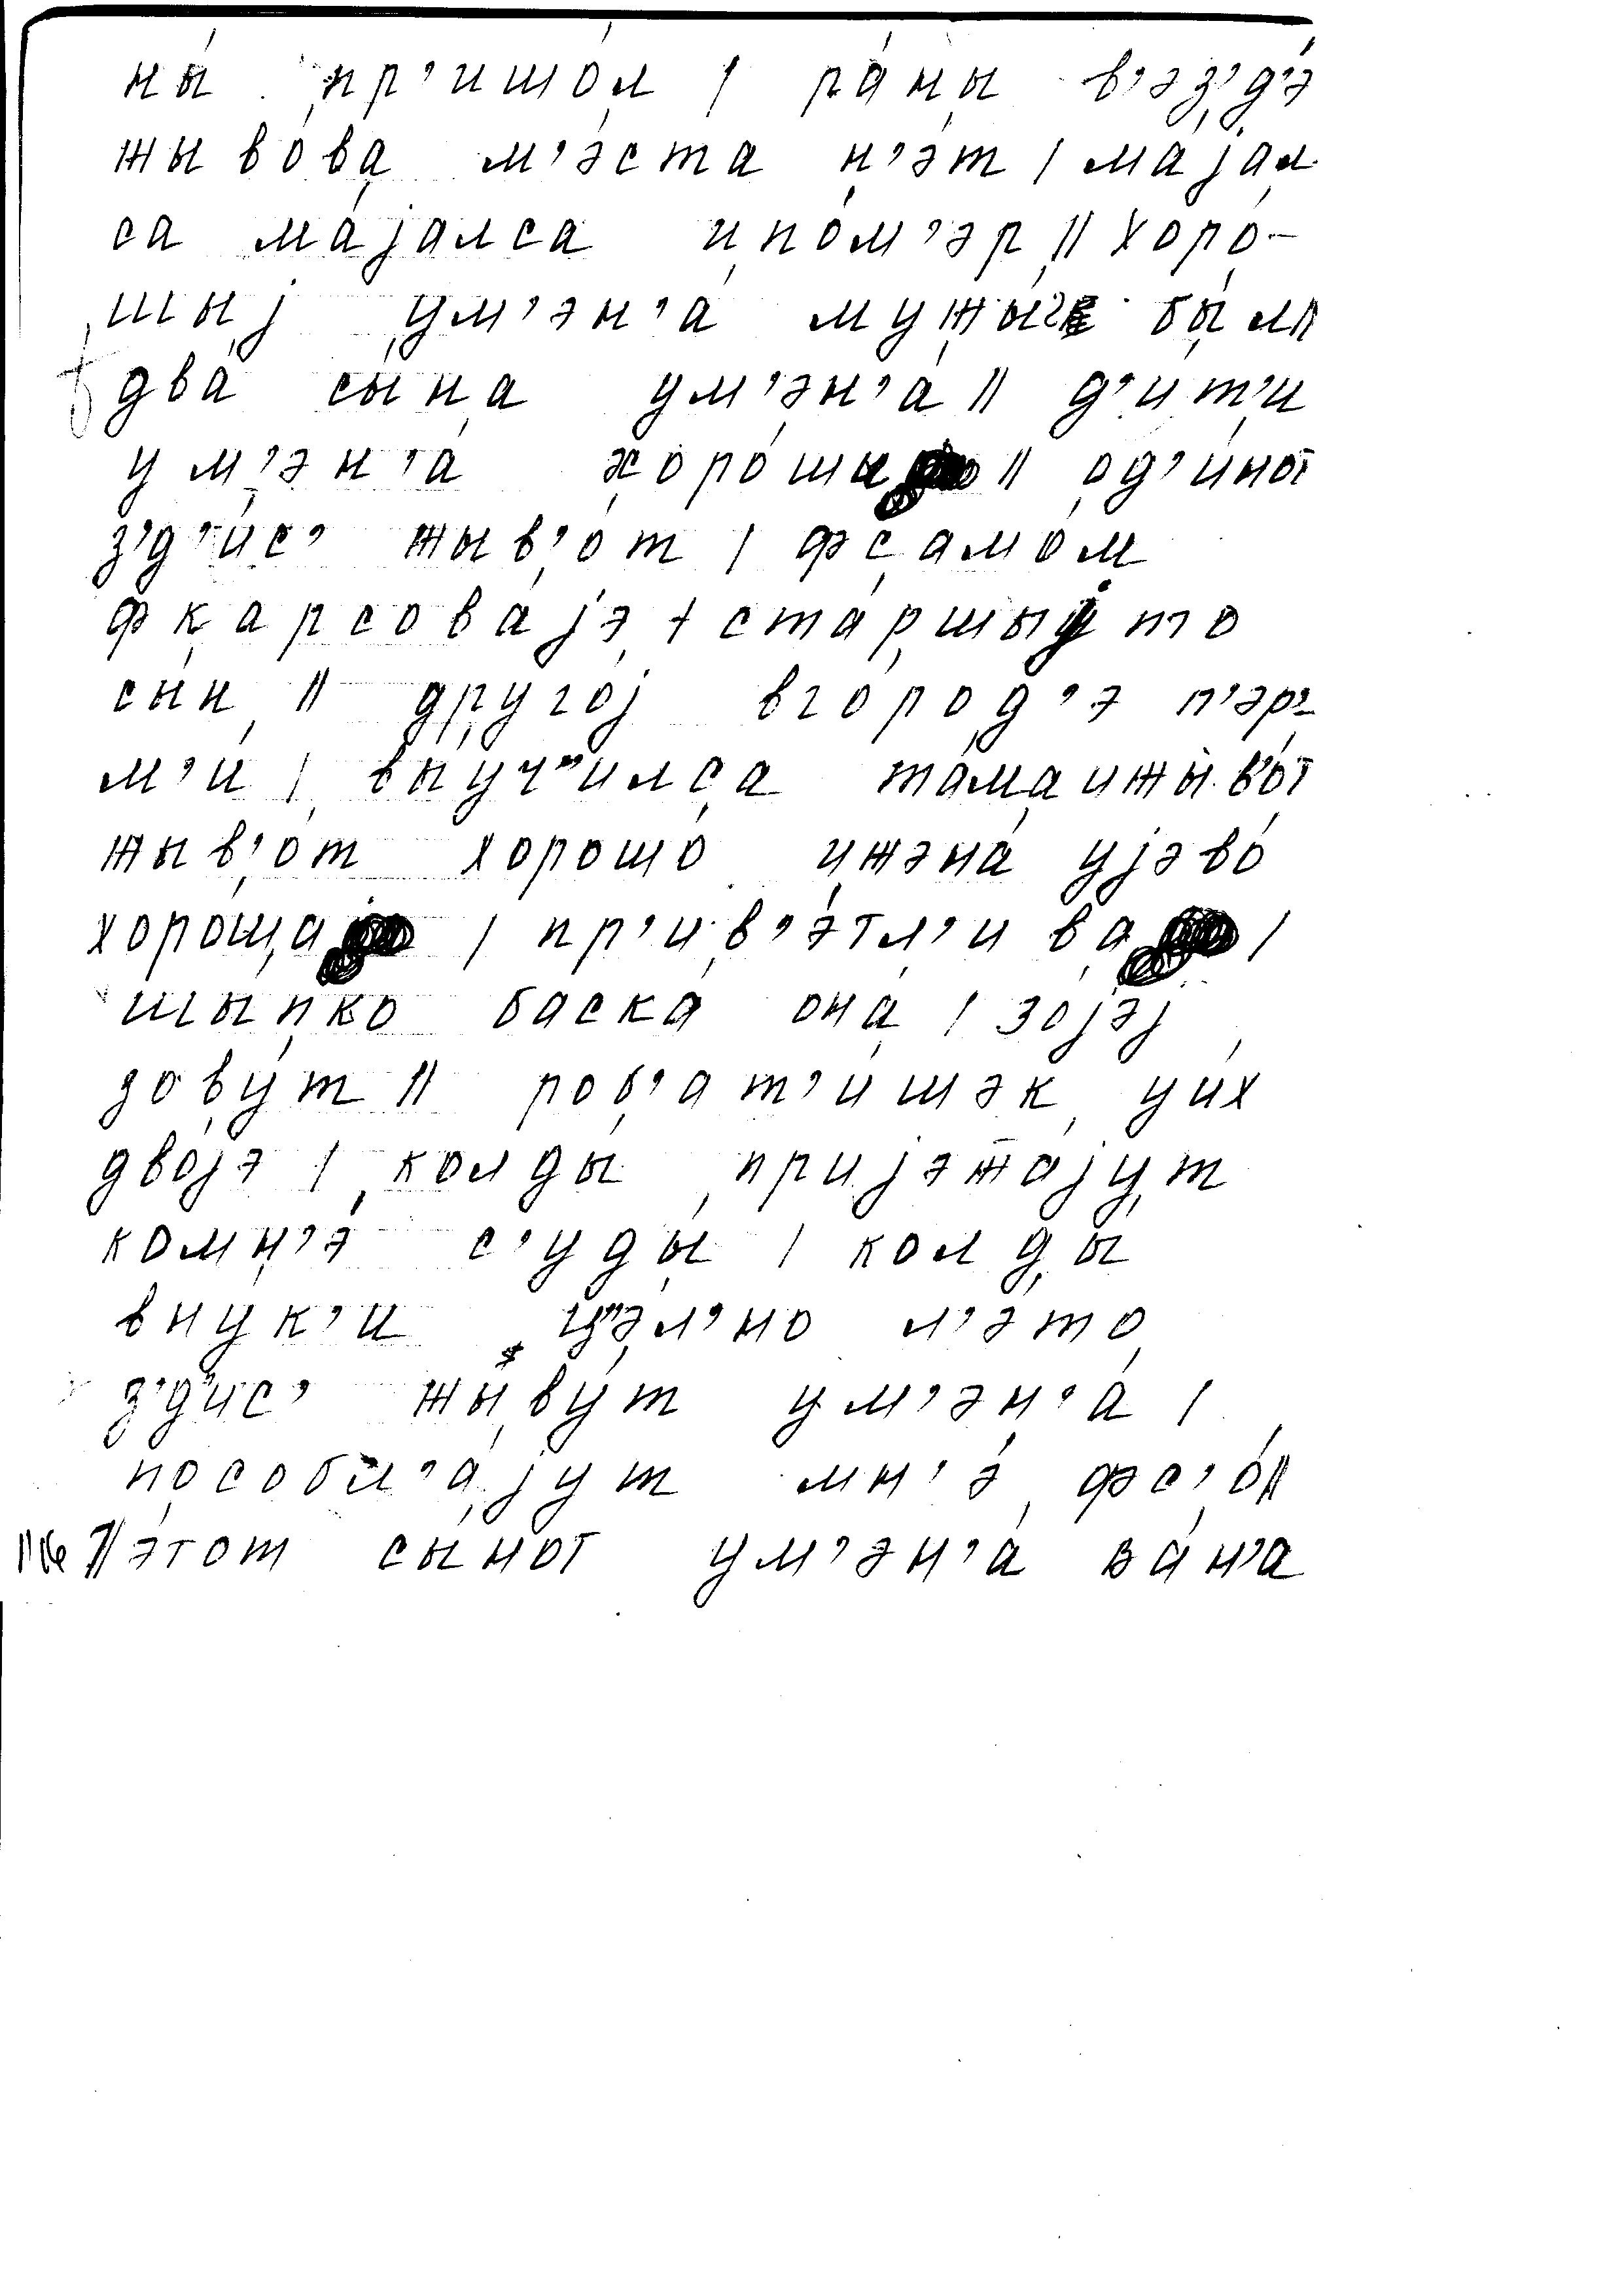 ны́ пр'ишо́л / ра́ны в'эз'д'э́
жыво́ва м'э́ста н'э́т / ма́јал
са ма́јалса ипо́м'эр // хоро́-
шыј ум'эн'а́ мужы́г бы́л //
два́ сы́на ум'эн'а́ // д'и́т'и
ум'эн'а́ хоро́шы // од'и́нот
з'д'и́с' жыв'о́т / фсамо́м
фкарсова́јэ / ста́ршыј то
сы́н // друго́ј вго́род'э п'эр'-
м'и́ / вы́уч'илса та́ма ижыв'о́т
жыв'о́т хорошо́ ижэна́ ујэво́
хоро́ша / пр'ив'э́тл'ива /
шы́пко баска́ она́ / зо́јэј
зову́т // роб'ат'и́шэк уи́х
дво́јэ / колды́ пријэжа́јут
комн'э́ с'уды́ / колды́
вну́к'и ц'э́л'но л'э́то
з'д'ис' жыву́т ум'эн'а́ /
пособл'а́јут мн'э́ фс'о́ //
// э́тот сы́нот ум'эн'а́ ва́н'а